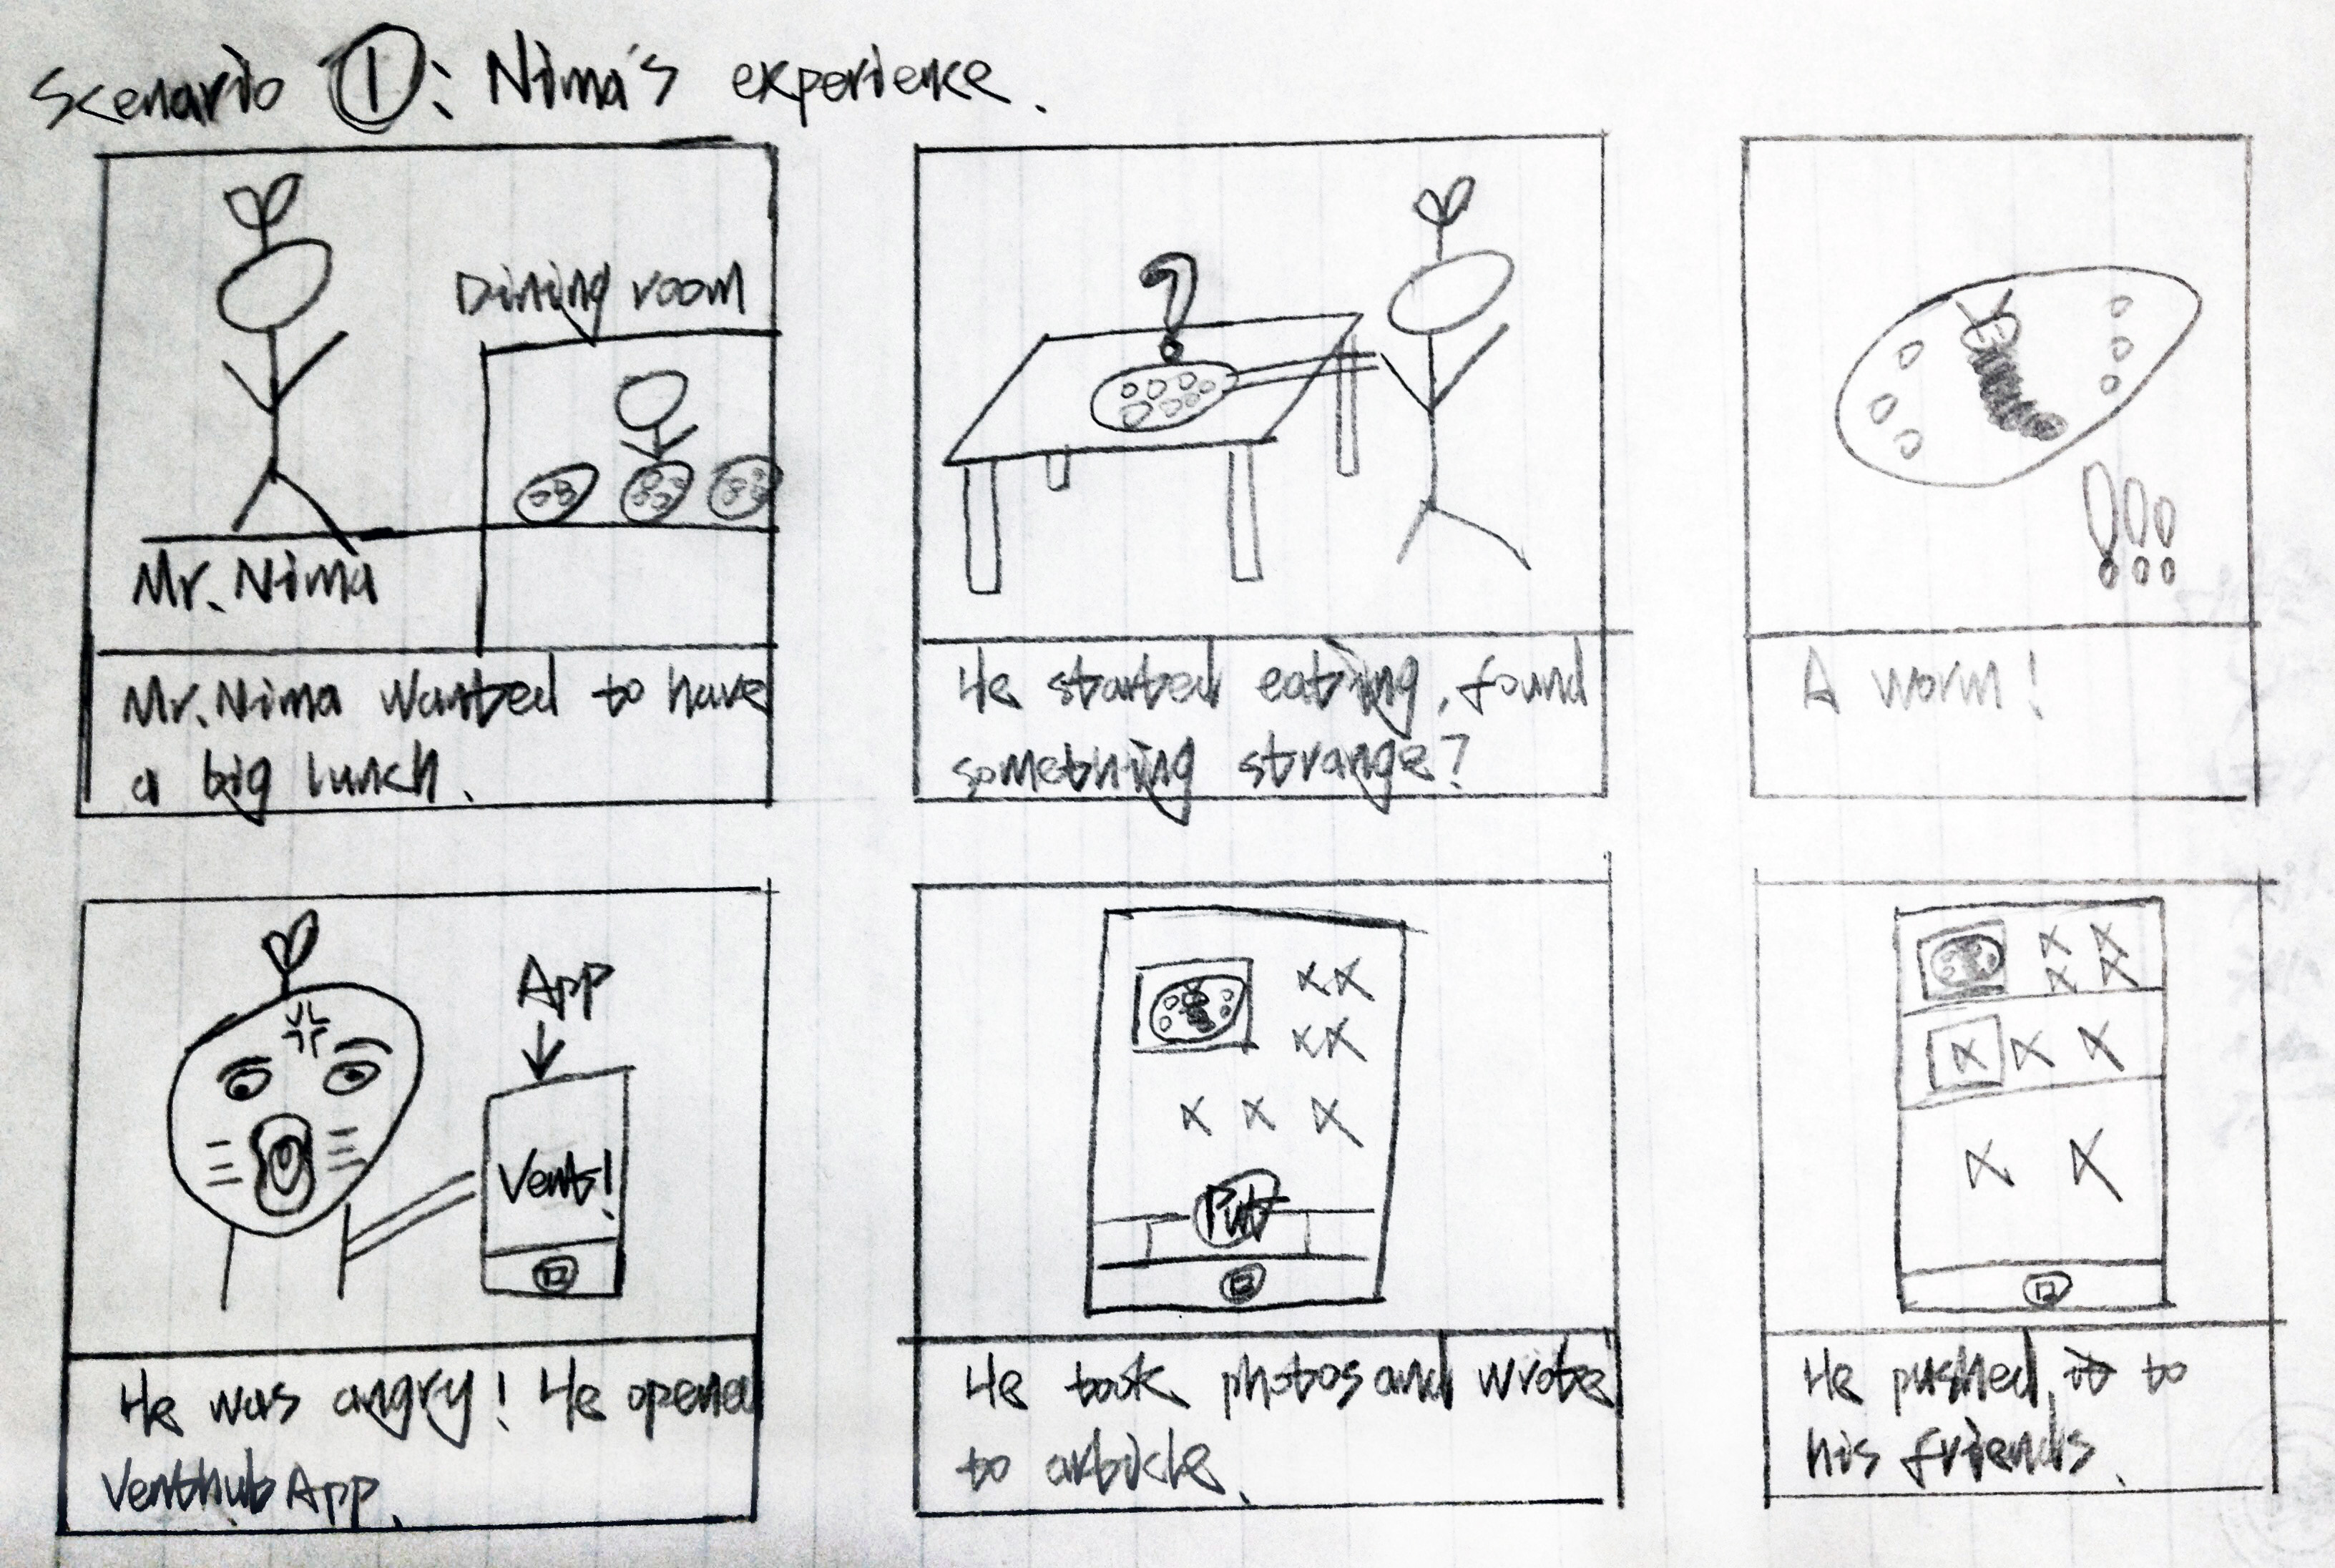 Scenario ①: Nima's experience.
Dining room
Mr. Nima
Mr. Nima wanted to have
a big lunch.
?
He started eating, found
something strange?
!!!
A worm!
App
Vent!
He was angry! He opened
Venthub App.
XX
XX
X X X
Put
He took photos and wrote
to article.
X X
X X
X X X
X X
He pushed it to
his friends.